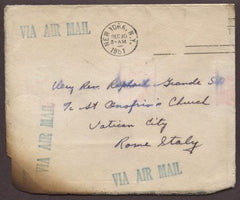 VIA AIR MAIL
NEW YORK, N.Y.
DEC 10
8-AM
1951
Very Rev. Raphael Grande
To St Onofrio's Church
Vatican City
Rome Italy
VIA AIR MAIL
VIA AIR MAIL